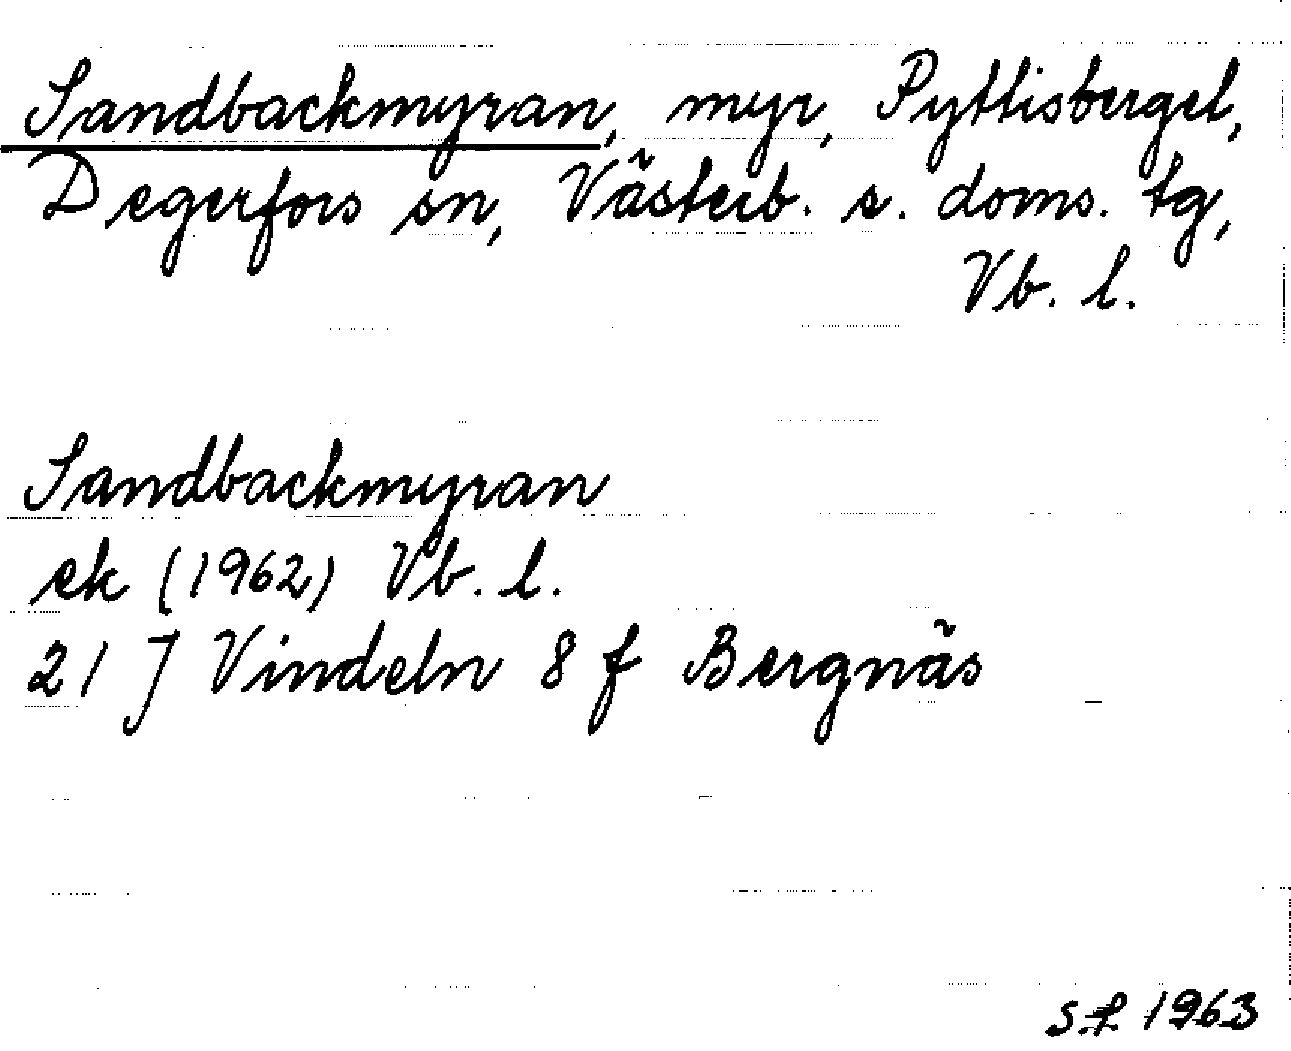 Sandbackmyran, myr, Pyttisberget,
Degerfors sn, Västerb. s. doms. tg,
Vb. l.
Sandbackmyran
ek (1962) Vb. l.
21 J Vindeln 8 f Bergnäs
1963